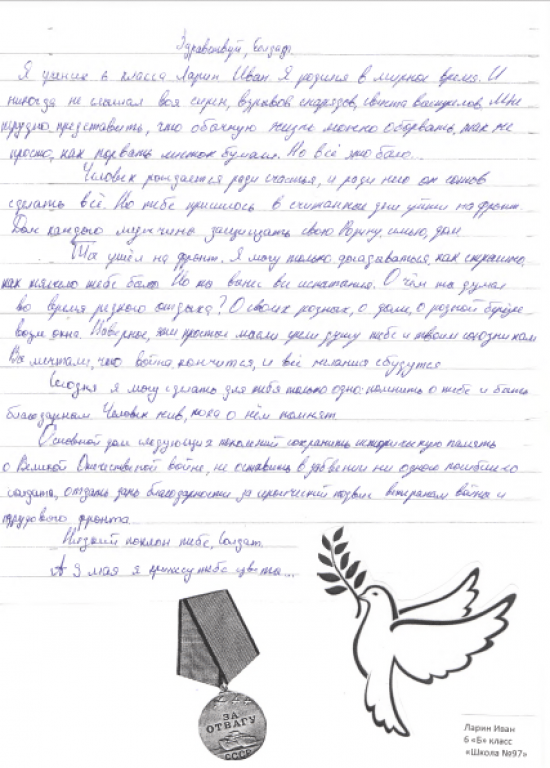 Здравствуй, Солдат.
Я ученик 6 класса Ларин Иван. Я родился в мирное время. И
никогда не слышал воя сирен, взрывов снарядов, свиста выстрелов. Мне
трудно представить, что обычную жизнь можно оборвать, так же
просто, как порвать листок бумаги. Но всё это было...
Человек рождается ради счастья, и ради него он готов
сделать всё. Но тебе пришлось в считанные дни уйти на фронт.
Долг каждого мужчины защищать свою Родину, семью, дом
Ты ушёл на фронт. Я могу только догадываться, как страшно,
как тяжело тебе было. Но ты вынес все испытания. О чём ты думал
во время редкого отдыха? О своих родных, о доме, о родной берёзе
возле окна. Наверное, эти простые мысли грели душу тебе и твоим
Вы мечтали, что война кончится, и все желания сбудутся
Сегодня я могу сделать для тебя только одно: помнить о тебе и быть
благодарным. Человек жив, пока о нём помнят.
Основной долг следующих поколений сохранить историческую память
о Великой Отечественной войне, не оставить в забвении ни одного погибшего
солдата, отдать дань благодарности за героический подвиг ветеранам войны и
трудового фронта.
Низкий поклон тебе, Солдат.
А 9 мая я принесу тебе цветы...
ЗА
ОТВАГУ
СССР
Ларин Иван
6 «Б» класс
«Школа №97»